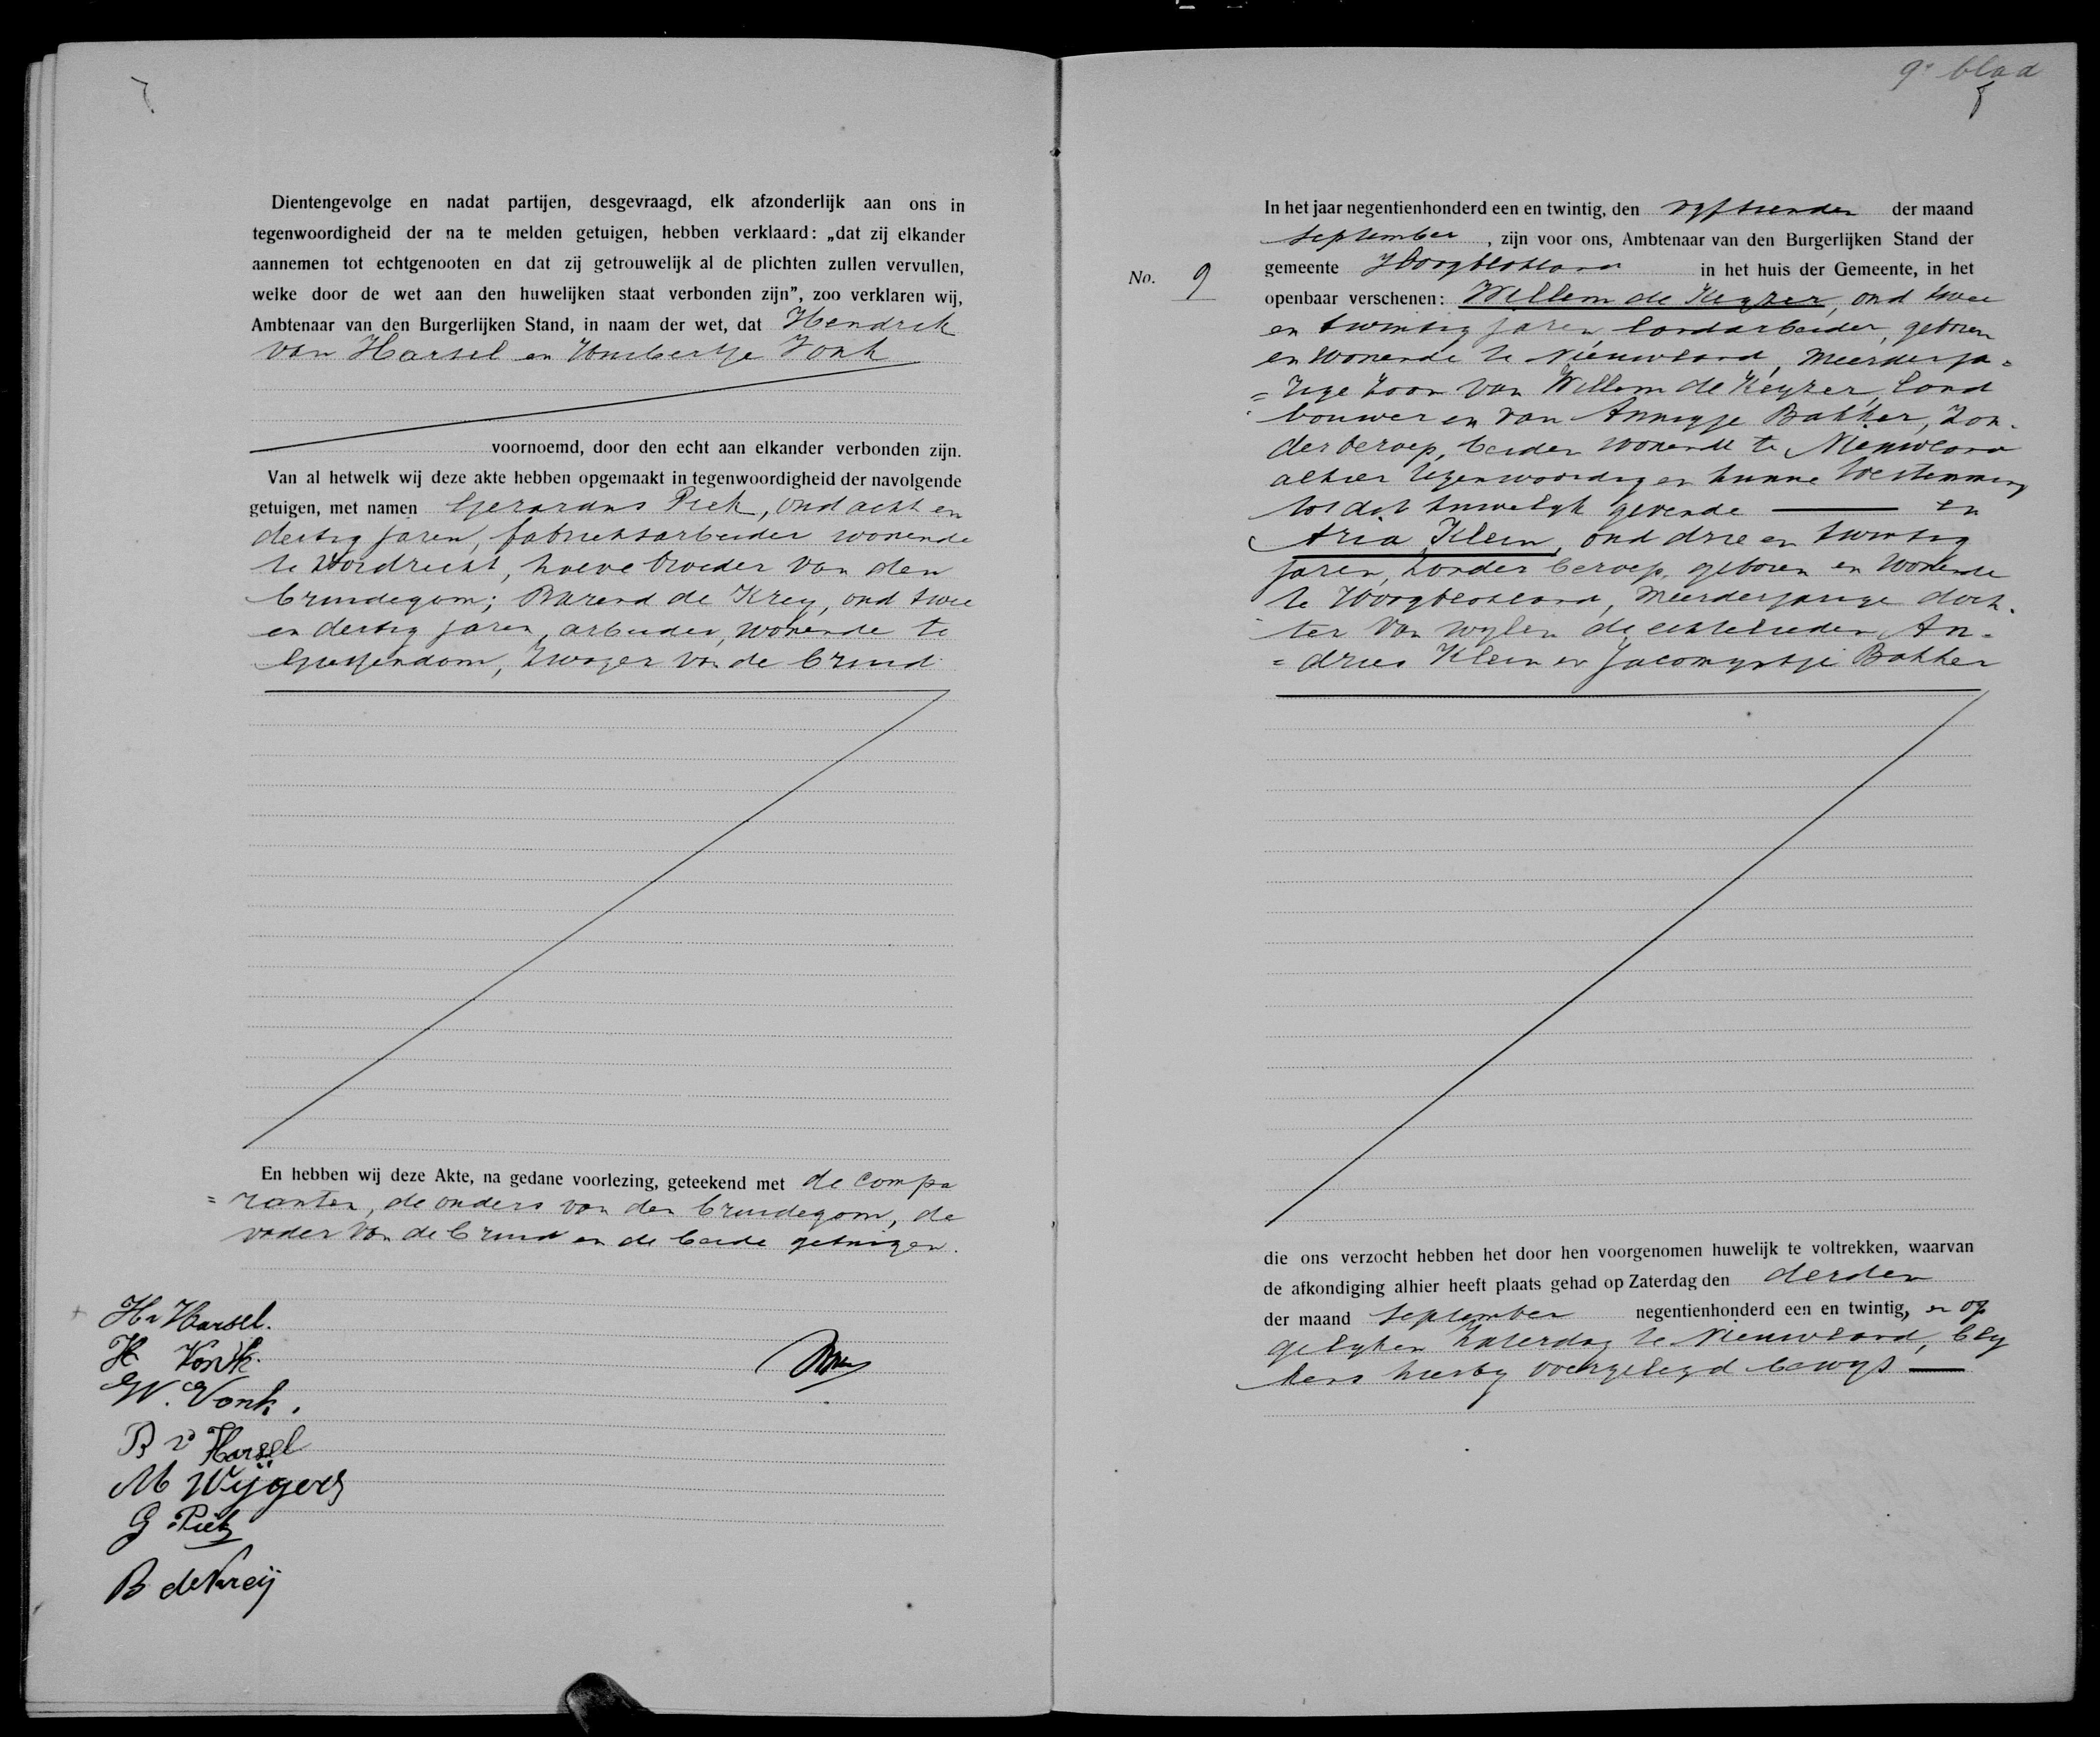 Dientengevolge en nadat partijen, desgevraagd, elk afzonderlijk aan ons in
tegenwoordigheid der na te melden getuigen, hebben verklaard: „dat zij elkander
aannemen tot echtgenooten en dat zij getrouwelijk al de plichten zullen vervullen,
welke door de wet aan den huwelijken staat verbonden zijn”, zoo verklaren wij,
Ambtenaar van den Burgerlijken Stand, in naam der wet, dat Hendrik
van Harsel en Huibertje Vonk
voornoemd, door den echt aan elkander verbonden zijn.
Van al hetwelk wij deze akte hebben opgemaakt in tegenwoordigheid der navolgende
getuigen, met namen Gerardus Piek, oud acht en
dertig jaren, fabrieksarbeider wonende
te Dordrecht, halve broeder van den
bruidegom; Barend de Kreij, oud twee
en dertig jaren, arbeider, wonende te
Giessendam, zwager van de bruid
En hebben wij deze Akte, na gedane voorlezing, geteekend met de compa
= ranten, de ouders van den bruidegom, de
vader van de bruid en de beide getuigen.
H v Harsel.
H Vonk.
W. Vonk.
B v Harsel
M Wijgers
G Piek
B de Kreij
9e blad
No. 9
In het jaar negentienhonderd een en twintig, den vyftienden der maand
September, zijn voor ons, Ambtenaar van den Burgerlijken Stand der
gemeente Hoogblokland in het huis der Gemeente, in het
openbaar verschenen: Willem de Keyzer, oud twee
en twintig jaren, landarbeider, geboren
en wonende te Nieuwland, meerderja=
= rige zoon van Willem de Keyzer, land
bouwer en van Annigje Bakker, zon-
der beroep, beiden wonende te Nieuwland
alhier tegenwoordig en hunne toestemming
tot dit huwelyk gevende en
Aria Klein, oud drie en twintig
jaren, zonder beroep, geboren en wonende
te Hoogblokland, meerderjarige doch-
ter van wylen de echtelieden An=
= dries Klein en Jacomyntje Bakker
die ons verzocht hebben het door hen voorgenomen huwelijk te voltrekken, waarvan
de afkondiging alhier heeft plaats gehad op Zaterdag den derden
der maand September negentienhonderd een en twintig, en op
gelyken Zaterdag te Nieuwland, bly
kens hierby overgelegd bewys